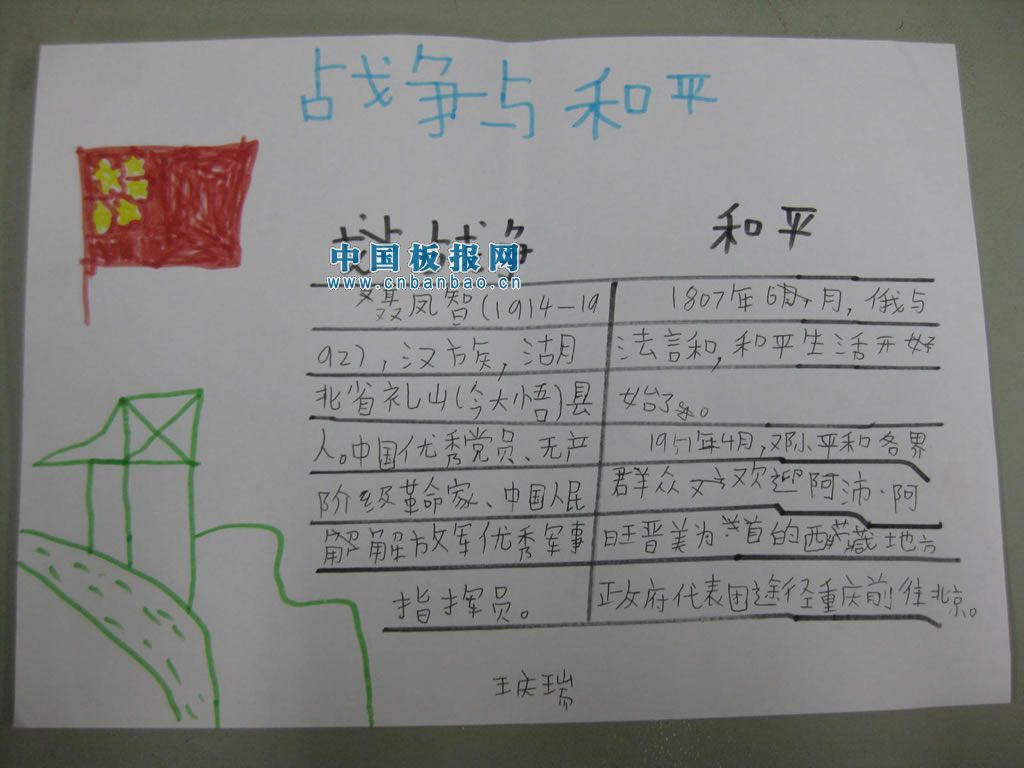 战争与和平
战争
和平
中国板报网
www.cnbanbao.cn
聂凤智(1914—19
92),汉族,湖
北省礼山(今大悟)县
人。中国优秀党员、无产
阶级革命家、中国人民
解放军优秀军事
指挥员。
1807年6月,俄与
法言和,和平生活开好
始了。
1951年4月,邓小平和各界
群众欢迎阿沛·阿
旺晋美为首的西藏地方
政府代表团途径重庆前往北京。
王庆瑞